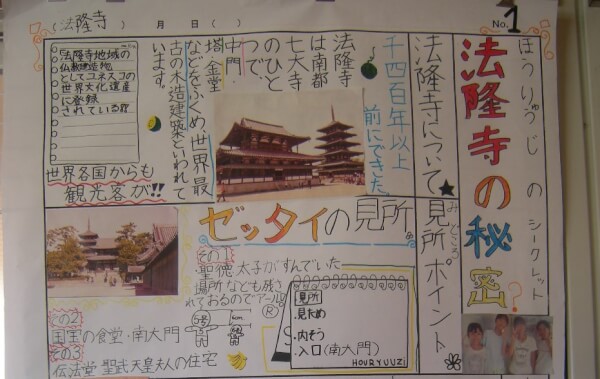 (法隆寺) 月 日( )
No.1
ほうりゅうじの
シークレット
法隆寺の秘密?
法隆寺について★
見所ポイント
みどころ
千四百年以上
前にできた
法隆寺
は南都
七大寺
のひと
つで、
中門・
塔・金堂
などをふくめ、世界最
古の木造建築といわれて
います。
「法隆寺地域の
仏教建造物」
としてユネスコの
世界文化遺産
に登録
されている
世界各国からも
観光客が!!
ゼッタイの見所
その1
聖徳太子がすんでいた
場所なども残さ
れておるのでアール
R
その2
国宝の食堂・南大門
その3
伝法堂 聖武天皇夫人の住宅
見所
・見ため
・内そう
・入口(南大門)
HOURYUUZI